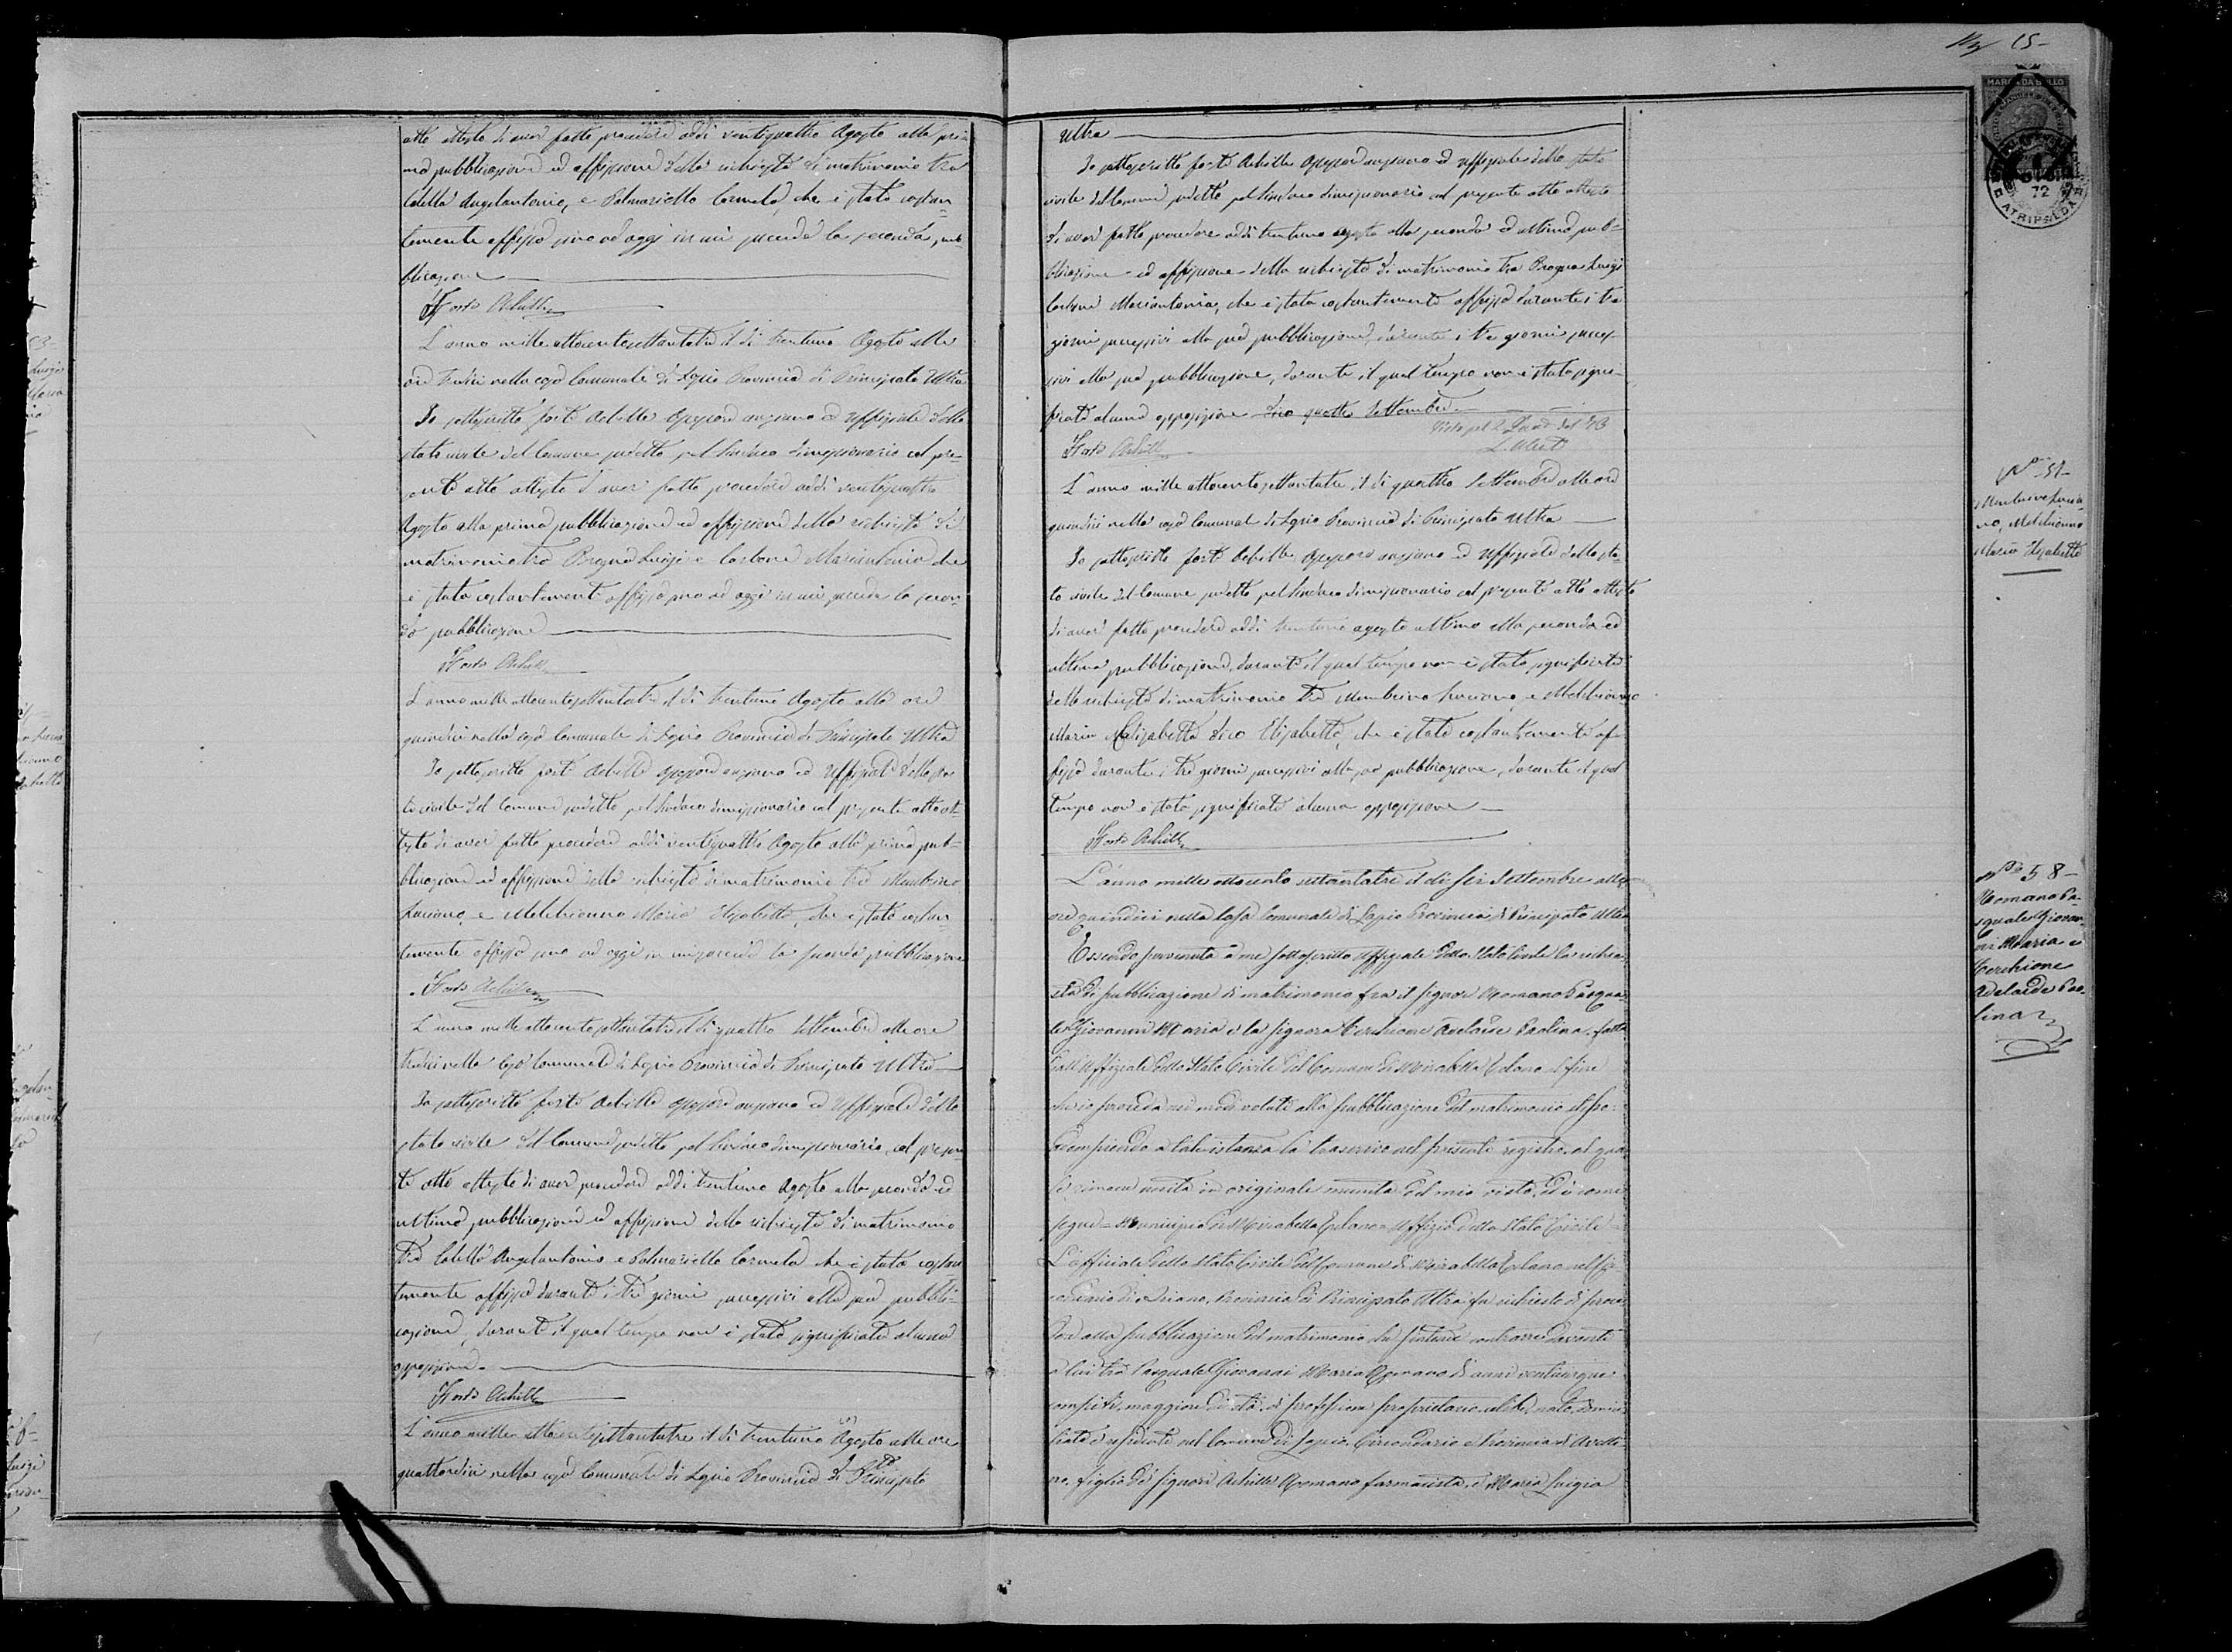 atto attesto di aver fatto procedere addì ventiquattro Agosto alla pri-
ma pubblicazione ed affissione della richiesta di matrimonio tra
Colella Angelantonio, e Palmariello Carmela, che è stata costan-
temente affissa sino ad oggi in cui procede la seconda pub-
blicazione
Forte Achille
L'anno mille ottocentosettantatre il dì trentuno Agosto alle
ore tredici nella casa Comunale di Lapio Provincia di Principato Ultra
Io sottoscritto Forte Achille assessore anziano ed uffiziale dello
stato civile del Comune sudetto pel Sindaco dimissionario col pre-
sente atto attesto d'aver fatto procedere addì ventiquattro
Agosto alla prima pubblicazione ed affissione della richiesta di
matrimonio tra Luigi e Carbone Mariantonia che
è stata costantemente affissa sino ad oggi in cui procede la secon-
da pubblicazione
Forte Achille
L'anno mille ottocentosettantatre il dì trentuno Agosto alle ore
quindici nella casa Comunale di Lapio Provincia di Principato Ultra
Io sottoscritto Forte Achille assessore anziano ed uffiziale dello sta-
to civile del Comune sudetto pel Sindaco dimissionario col presente atto at-
testo di aver fatto procedere addì ventiquattro Agosto alla prima pub-
blicazione ed affissione della richiesta di matrimonio tra
e Melchionno Maria Elisabetta, che è stata costan-
temente affissa sino ad oggi in cui procede la seconda pubblicazione
Forte Achille
L'anno mille ottocentosettantatre il dì quattro Settembre alle ore
tredici nella casa Comunale di Lapio Provincia di Principato Ultra
Io sottoscritto Forte Achille assessore anziano ed uffiziale dello
stato civile del Comune sudetto pel Sindaco dimissionario, col presen-
te atto attesto di aver procedere addì trentuno Agosto alla seconda ed
ultima pubblicazione ed affissione della richiesta di matrimonio
tra Colella Angelantonio e Palmariello Carmela che è stata costan
temente affissa durante i tre giorni successivi alla sua pubbli-
cazione, durante il qual tempo non è stata significata alcuna
opposizione
Forte Achille
L'anno mille ottocentosettantatre il dì trentuno Agosto alle ore
quattordici nella casa Comunale di Lapio Provincia di Principato
15
MARCA DA BOLLO
72
ATRIPALDA
Ultra
Io sottoscritto Forte Achille assessore anziano ed uffiziale dello stato
civile del Comune sudetto pel Sindaco dimissionario col presente atto attesto
di aver fatto procedere addì trentuno agosto alla seconda ed ultima pub-
blicazione ed affissione della richiesta di matrimonio tra Luigi
Carbone Mariantonia, che è stata costantemente affissa durante i tre
giorni successivi alla sua pubblicazione, durante i tre giorni succes-
sivi alla sua pubblicazione, durante il qual tempo non è stata signi-
ficata alcuna opposizione dico quattro Settembre
Forte Achille
L'anno mille ottocentosettantatre il dì quattro Settembre alle ore
quindici nella casa Comunale di Lapio Provincia di Principato Ultra
Io sottoscritto Forte Achille assessore anziano ed uffiziale dello sta-
to civile del Comune sudetto pel Sindaco dimissionario col presente atto attesto
di aver fatto procedere addì trentuno agosto ultimo alla seconda ed
ultima pubblicazione, durante il qual tempo non è stata significata
della richiesta di matrimonio tra e Melchionno
Maria dico Elisabetta, che è stata costantemente af-
fissa durante i tre giorni successivi alla sua pubblicazione, durante il qual
tempo non è stata significata alcuna opposizione
Forte Achille
N° 58
Romano Pa-
squale Giovan-
ni Maria e
Cerchione
Adelaide Pao-
lina
L'anno mille ottocento settantatre il dì sei Settembre alle
ore quindici nella Casa Comunale di Lapio Provincia di Principato Ultra
Essendo pervenuta a me sottoscritto Uffiziale dello Stato Civile la richie-
sta di pubblicazione di matrimonio fra il Signor Romano Pasqua-
le Giovanni Maria e la Signora Cerchione Adelaide Paolina, fatta
dall'Uffiziale dello Stato Civile del Comune di Mirabella Eclano al fine
che io proceda nei modi voluti alla pubblicazione del matrimonio stesso
adempiendo a tale istanza la trascrivo nel presente registro, al qua-
le rimane unita in originale munita del mio visto, ed è come
segue = Municipio di Mirabella Eclano = Uffizio dello Stato Civile
L'Officiale dello Stato Civile del Comune di Mirabella Eclano nel Cir-
condario di Ariano, Provincia di Principato Ultra fu richiesto di proce-
dere alla pubblicazione del matrimonio che s'intende contrarre davanti
a lui tra Pasquale Giovanni Maria Romano di anni venticinque
compiti, maggiore di età, di professione proprietario, celibe, nato, domici-
liato e residente nel Comune di Lapio, Circondario e Provincia di Avelli-
no, figlio di Signori Achille Romano farmacista, e Maria Luigia